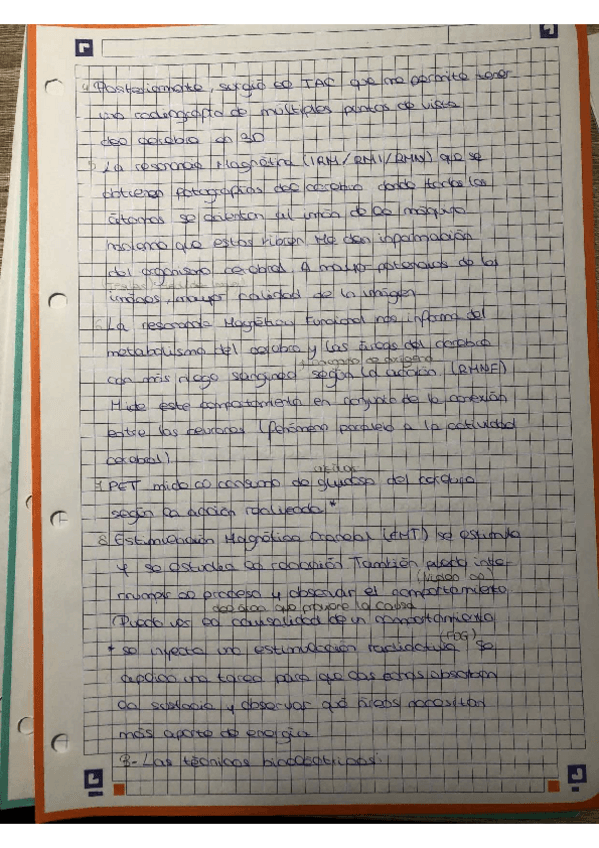 4. Posteriormente, surgió el TAC que me permite tener
una radiografía de múltiples puntos de vista
del cerebro en 3D
5. La resonancia Magnética (IRM/RMI/RMN) que se
obtienen fotografías del cerebro donde todos los
átomos se orientan al imán de la máquina
molesta que estos vibren. Me dan información
del organismo cerebral. A mayor potencia de los
imanes, mayor calidad de la imagen
6. La resonancia Magnética Funcional nos informa del
metabolismo del cerebro y las áreas del cerebro
consumo de oxígeno
con más riego sanguíneo según la acción (RMNF)
Mide este comportamiento en conjunto de la conexión
entre las neuronas (fenómeno paralelo a la actividad
cerebral)
7. PET mide el consumo de glucosa del
según la acción realizada *
8. Estimulación Magnética Craneal (EMT) se estimula
y se estudia la reacción También puedo inte-
rrumpir el proceso y observar el comportamiento
Puedo ver la causalidad de un comportamiento
es algo que provoque la causa
* se inyecta una estimulación radiactiva (FDG) se
aplica una tarea para que las absorban
la sustancia y observar qué áreas necesitan
más aporte de energía
3- Las técnicas bioeléctricas: